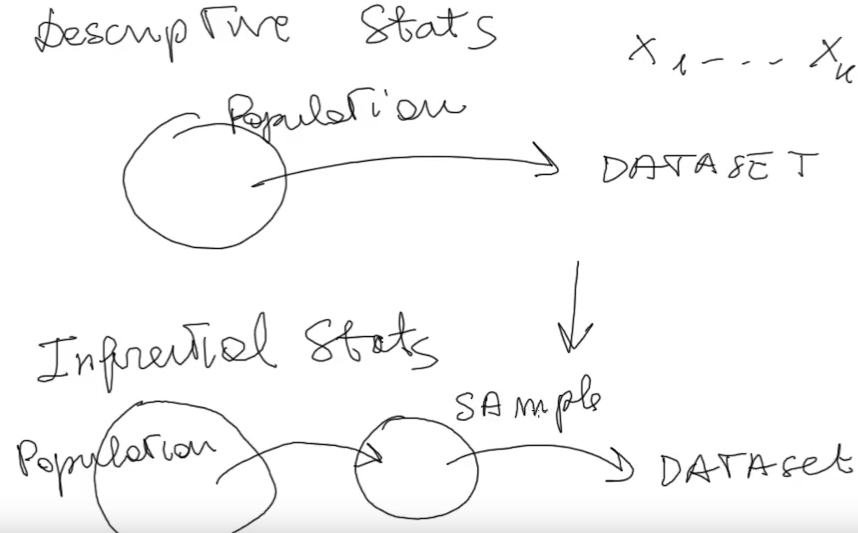 Descriptive Stats
x₁ - - - - xₙ
Population
DATASET
Infrential Stats
SAmple
Population
DATAset